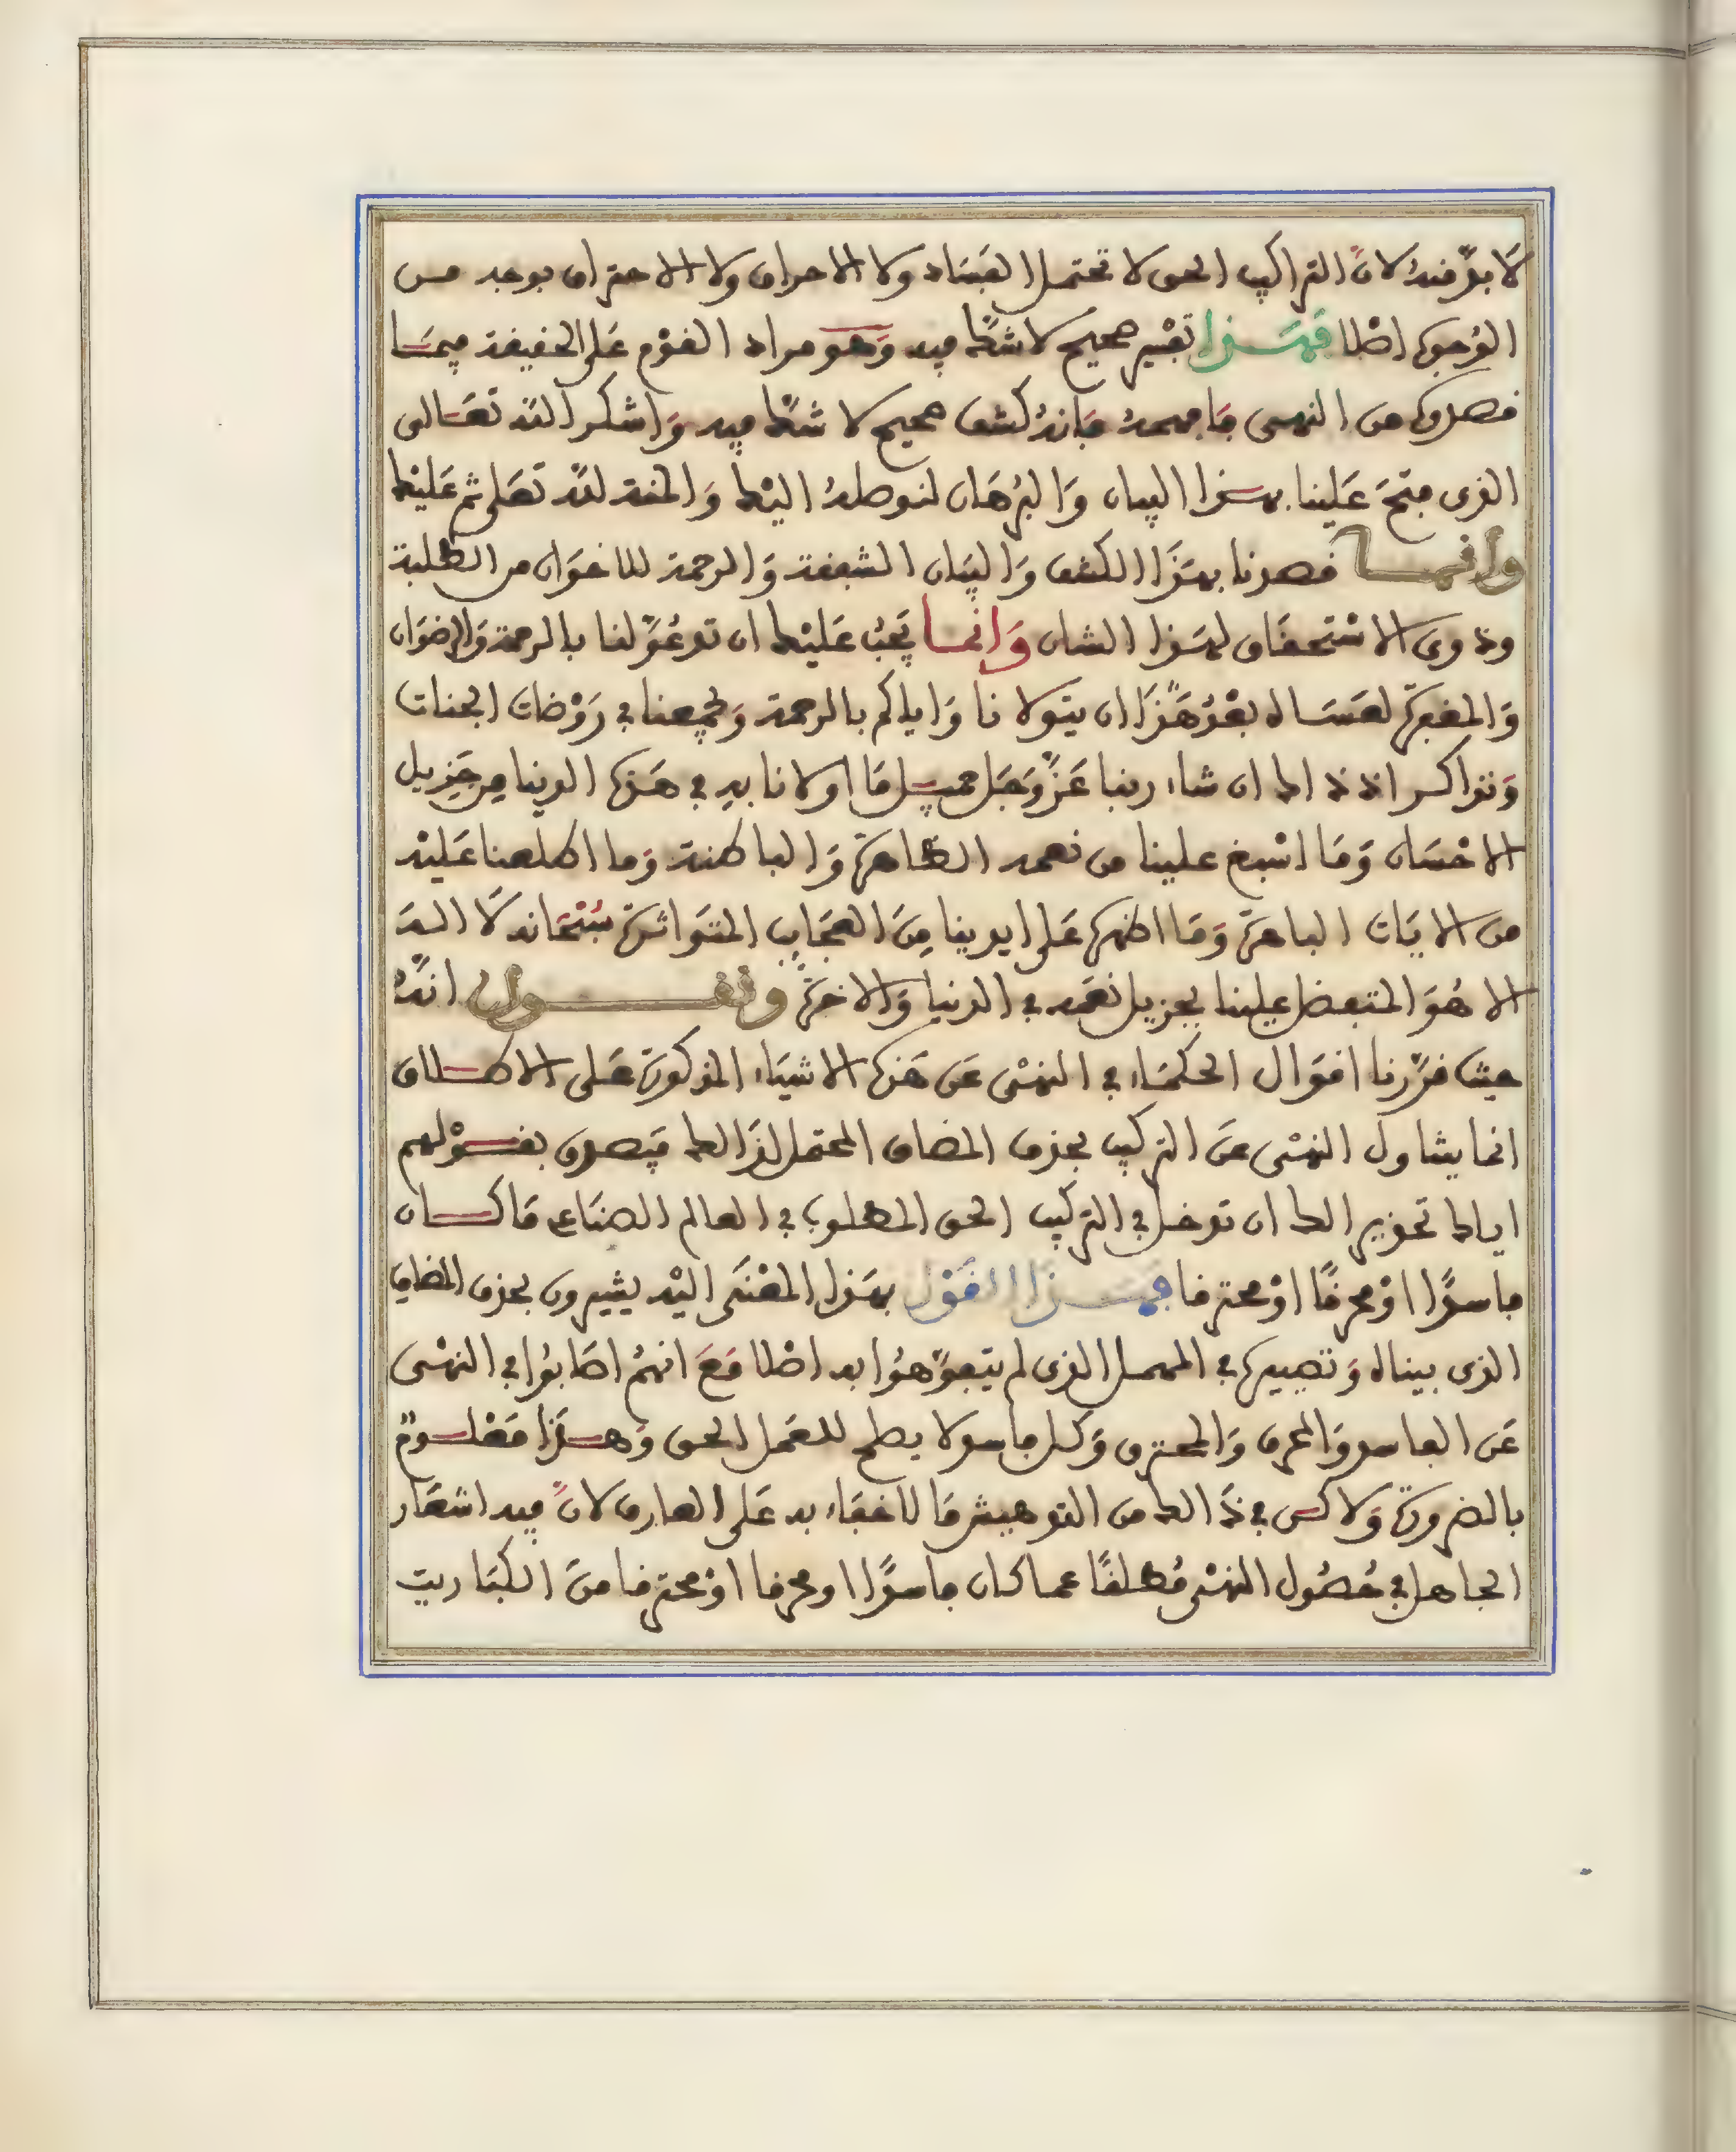 لَا بدَّ منهُ لانَّ التراكيب الحق لا تحتمل الفسَاد ولا الاحراق ولا الاحتراق بوجه من
الوُجوه اصْلا فهَـذا تفْسير صحيح لا شكَّ فيه وَهو مراد القوْم عَلى الحقيقة فيمَـا
قصدوه من النهى فَافهمهُ فَانهُ كشف صحيح لا شكَّ فيه وَاشكر اللّه تعَالى
الذى فتحَ عَلينا بهـذا البيان وَالبُرهَان لنوصلهُ اليْك وَالمنة للّه تعَلى ثم عَليْك
وانمـا قصدنا بهَذَا الكشف وَالبيَان الشفقة وَالرحمة للاخوَان من الطلبة
وذوى الاسْتحقَاق لهَـذا الشان وَانمـا يَجبُ عَليْك ان تدعُوَ لنا بالرحمة وَالرضوَان
وَالمغفرة لعَسَـاه بعْدُ هَذَا ان يتولانا وَاياكم بالرحمة وَيجمعنا في رَوْضات الجنات
وَنتذاكر اذ ذاك ان شاء ربنا عَزَّ وَجَل جميـل مَا اولانا بهِ في هَـذه الدنيا مِن جَزيل
الاحْسَان وَمَا اسْبغ علينا من نعمه الظاهرَة وَالباطنة وَما اطلعنا عَليْه
من الايَات الباهرَة وَمَا اظهره عَلى ايدينا مِنَ العجَايِب المتوَاترَة سُبْحَانه لَا الـهَ
الا هُوَ المتفضل علينا بجزيل نعَمه في الدنيا وَالاخرَة ونقـــول انهُ
حيث قرَّرنا اقوَال الحكمَاء في النهْى عَن هَذه الاشيَاء المذكورَة عَلى الاطـلاق
انما يتناول النهْى عَنَ التركيب بحذف المضاف المحتمل لذَالك فيَصدق بقـوْلهم
اياك تحذير الك ان تدخل في التركيب الحق المطلوب في العالم الصنَاعى مَا كـان
فاسدًا اوْ محرقًا اوْ محترقا فهَـذا القَوْل بهَذا المعْنَى اليْه يشيرون بحذف المضاف
الذى بيناه وَتصييره في المهمل الذى لم يتفوَّهوُا به اصْلا مَعَ انهمُ اصَابوُا في النهْى
عَن الفاسد وَالمحرق وَالمحترق وَكل فاسد لا يصلح للعَمل الحق وَهـذَا مَعْلـومٌ
بالضرورَة وَلاكـن في ذَالك من التوهيش مَا لا خفَاء به عَلى العارف لانَّ فيه اشعَار
الجاهل في حُصُول النهْى مُطلقًا عما كان فاسدًا او محرقا اوْ محترقا منَ الكبَاريت